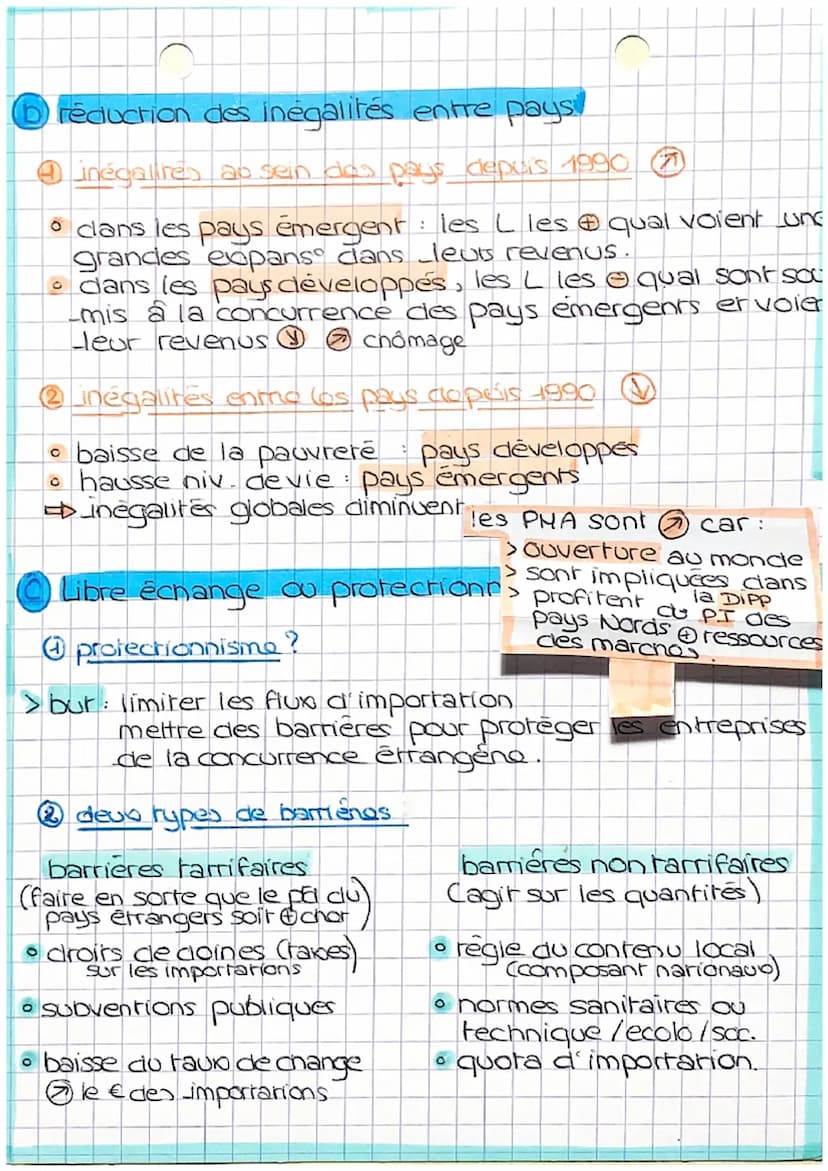 b réduction des inégalités entre pays
1 inégalités au sein des pays depuis 1990 ↗
dans les pays émergent : les L les ⊕ qual voient une
grandes expans° dans leurs revenus.
dans les pays développés, les L les ⊖ qual sont sou
-mis à la concurrence des pays émergents et voien
leur revenus ↘ ↗ chômage
2 inégalités entre les pays depuis 1990 ↓
baisse de la pauvreté : pays développés
hausse niv. de vie : pays émergents
⇨ inégalités globales diminuent
les PMA sont ↗ car :
> ouverture au monde
> sont impliquées dans
la DiPP
> profitent du P.I des
pays Nords ⊕ ressources
des marchés.
C Libre échange ou protectionn
1 protectionnisme ?
> but : limiter les flux d'importation
mettre des barrières pour protéger les entreprises
de la concurrence étrangène.
2 deux types de barriéres
barrières tarrifaires
(faire en sorte que le pdt du
pays étrangers soit ⊕ cher)
droits de doines (taxes)
sur les importations
subventions publiques
baisse du taux de change
↗ le € des importations
barriéres non tarrifaires
(agit sur les quantités)
règle du contenu local
(composant nationaux)
normes sanitaires ou
technique / ecolo / soc.
quota d'importation.